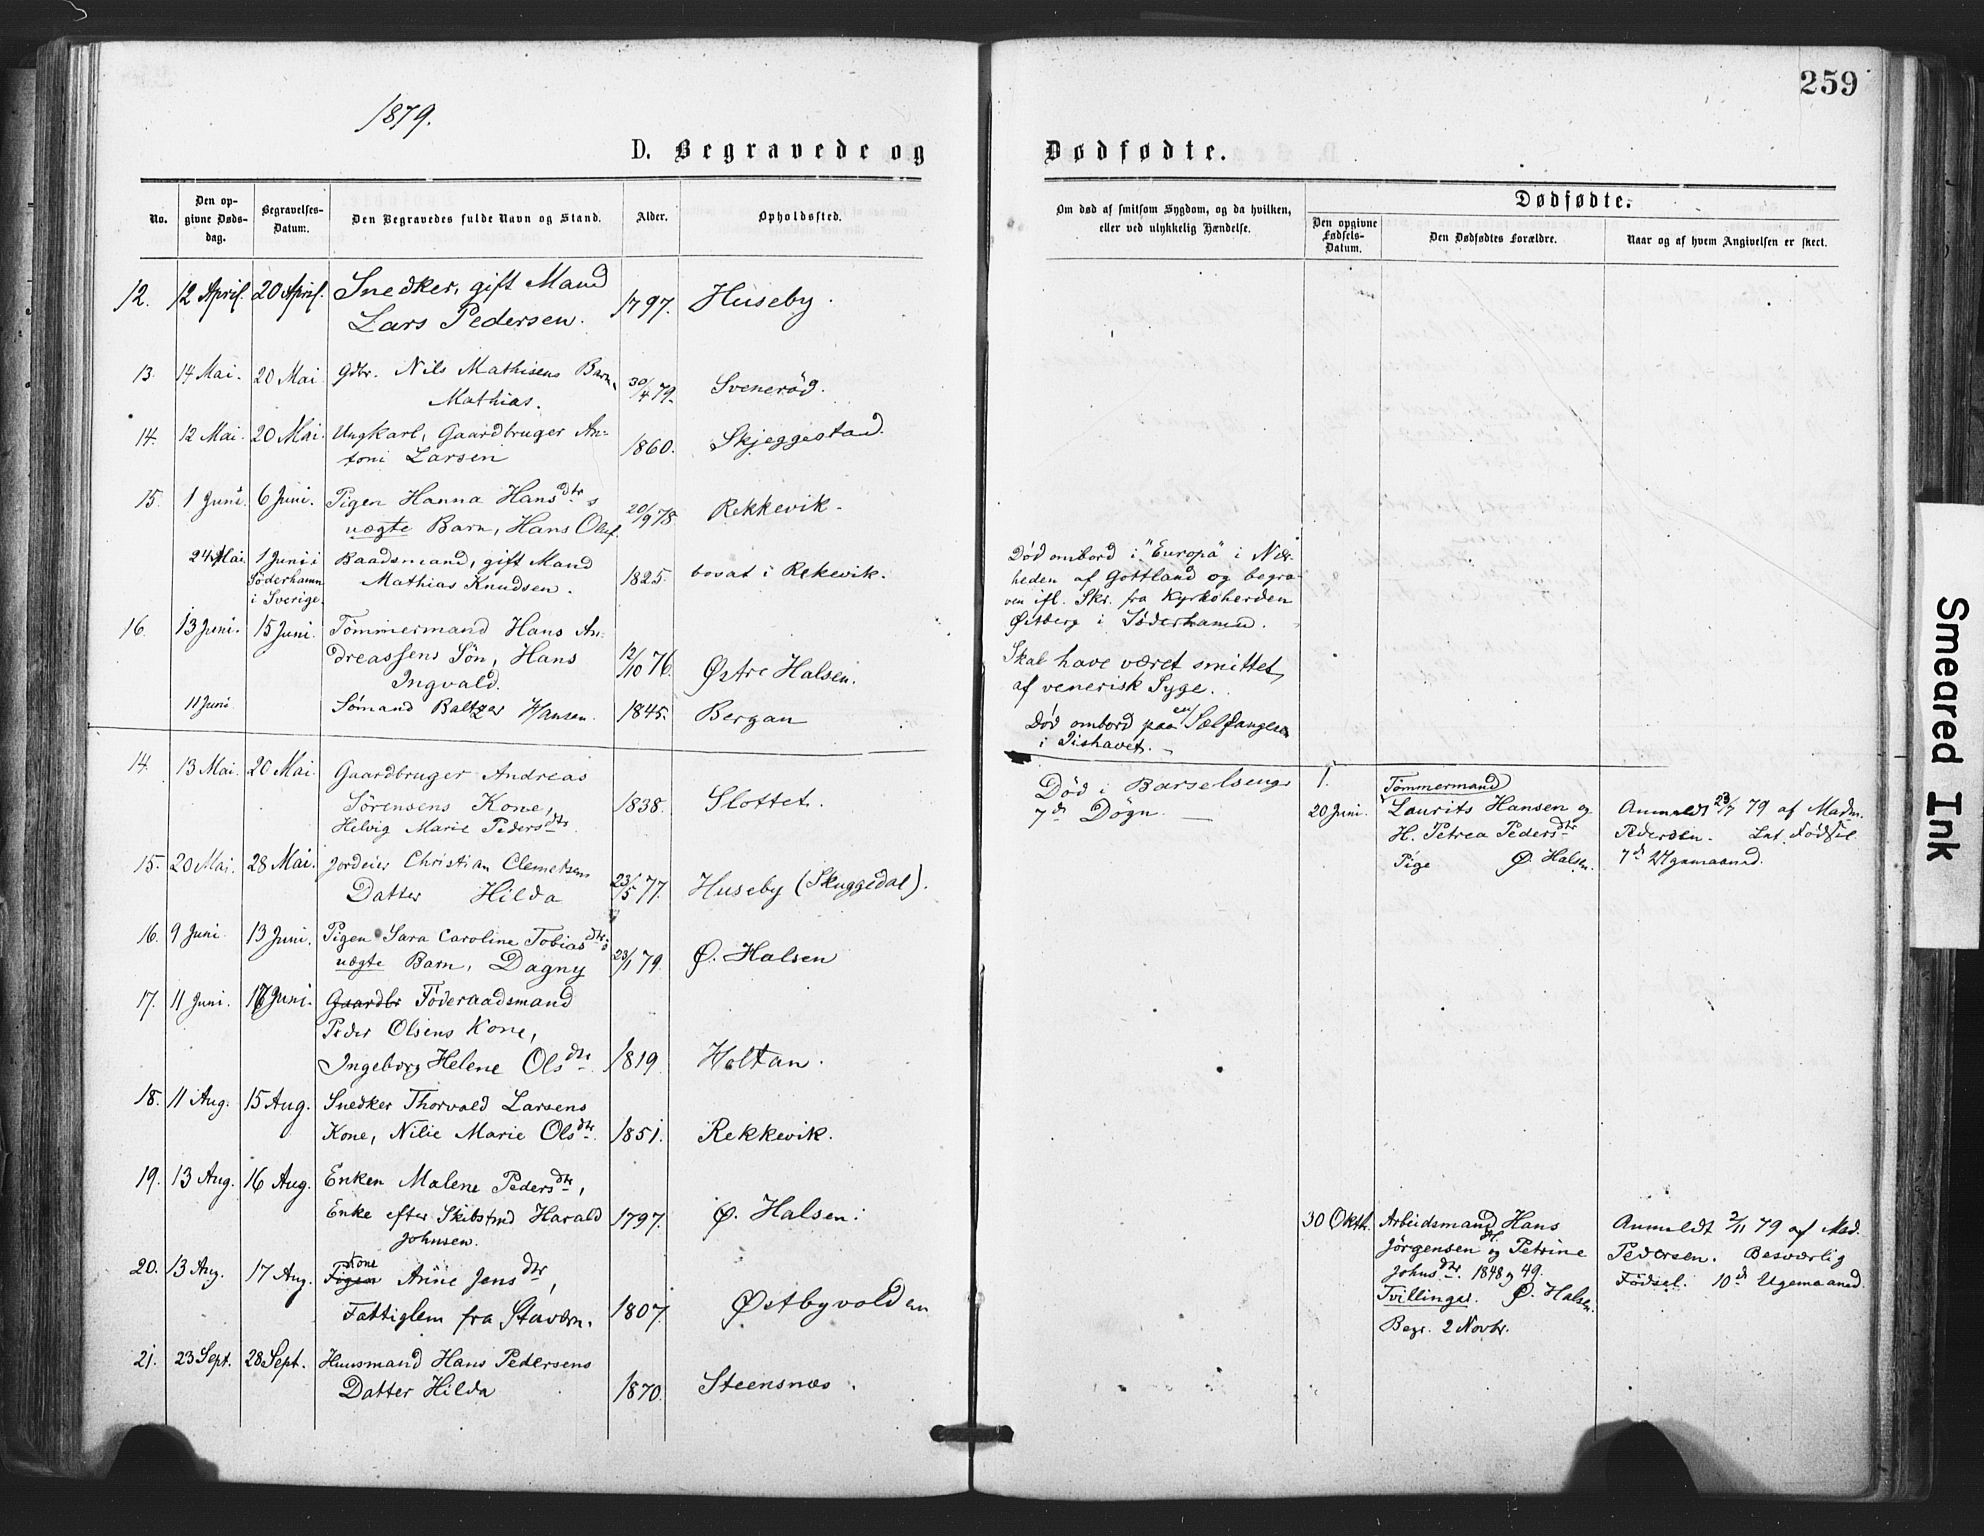 259
1879.
D. Begravede og
Dødfødte.
No.
Den op-
givne Døds-
dag.
Begravelses-
Datum.
Den Begravedes fulde Navn og Stand.
Alder.
Opholdssted.
Om død af smitsom Sygdom, og da hvilken,
eller ved ulykkelig Hændelse.
Dødfødte.
Den opgivne
Fødsels-
Datum.
Den Dødfødtes Forældre.
Naar og af hvem Angivelsen er skeet.
12. 12 April. 20 April. Snedker, gift Mand
Lars Pedersen. 1797. Huseby.
13. 14 Mai. 20 Mai Gdbr. Nils Mathisens Barn,
Mathias. 30/4 79. Svenerød.
14. 12 Mai. 20 Mai. Ungkarl, Gaardbruger An-
toni Larsen 1860. Skjeggestad.
15. 1 Juni. 6 Juni. Pigen Hanna Hansdtrs
uægte Barn, Hans Oluf 20/9 78. Rekkevik.
24 Mai 1 Juni i
Søderhamn
i Sverige.
Baadsmand, gift Mand
Mathias Knudsen. 1825. bosat i Rekevik.
Død ombord i "Europa" i Nær-
heden af Gottland og begra-
ven ifl. Skr. fra Kyrkoherden
Østberg i Søderhamn.
16. 13 Juni. 15 Juni. Tømmermand Hans An-
dreassens Søn, Hans
Ingvald. 12/10 76. Østre Halsen.
Skal have været smittet
af venerisk Syge.
11 Juni Sømand Baltzer Hansen. 1845. Bergan
Død ombord paa en Sælfanger
i Ishavet.
14. 13 Mai. 20 Mai. Gaardbruger Andreas
Sørensens Kone,
Helvig Marie Pedersdtr. 1838. Slottet.
Død i Barselseng
7de Døgn.
1.
20 Juni.
Tømmermand
Laurits Hansen og
H. Petrea Pedersdtr
Pige Ø. Halsen.
Anmeldt 23/7 79 af Madm.
Pedersen. Lat. Fødsel
7de Ugemaaned.
15. 20 Mai. 28 Mai. Jordeier Christian Clemetsens
Datter Hilda 23/5 77. Huseby (Skuggedal).
16. 9 Juni 13 Juni. Pigen Sara Caroline Tobiasdtrs
uægte Barn, Dagny 23/1 79. Ø. Halsen
17. 11 Juni. 17 Juni. Gaardbr Føderaadsmand
Peder Olsens Kone,
Ingeborg Helene Olsdtr 1819. Holtan.
18. 11 Aug. 15 Aug. Snedker Thorvald Larsens
Kone, Nilie Marie Olsdtr. 1851. Rekkevik.
19. 13 Aug. 16 Aug. Enken Malene Pedersdtr,
Enke efter Skibstmd Harald
Johnsen. 1797. Ø. Halsen.
20. 13 Aug. 17 Aug. Kone
Pigen Anne Jensdtr,
Fattiglem fra Stavern. 1807. Østbyvolden
21. 23 Sept. 28 Sept. Huusmand Hans Pedersens
Datter Hilda 1870. Steensnæs.
30 Oktb. Arbeidsmand Hans
Jørgensen og Petrine
Johnsdtr. 1848 og 49.
Tvillinger. Ø. Halsen.
Begr. 2 Novbr.
Anmeldt 2/11 79 af Mad.
Pedersen. Besværlig
Fødsel. 10de Ugemaaned.
Smeared Ink